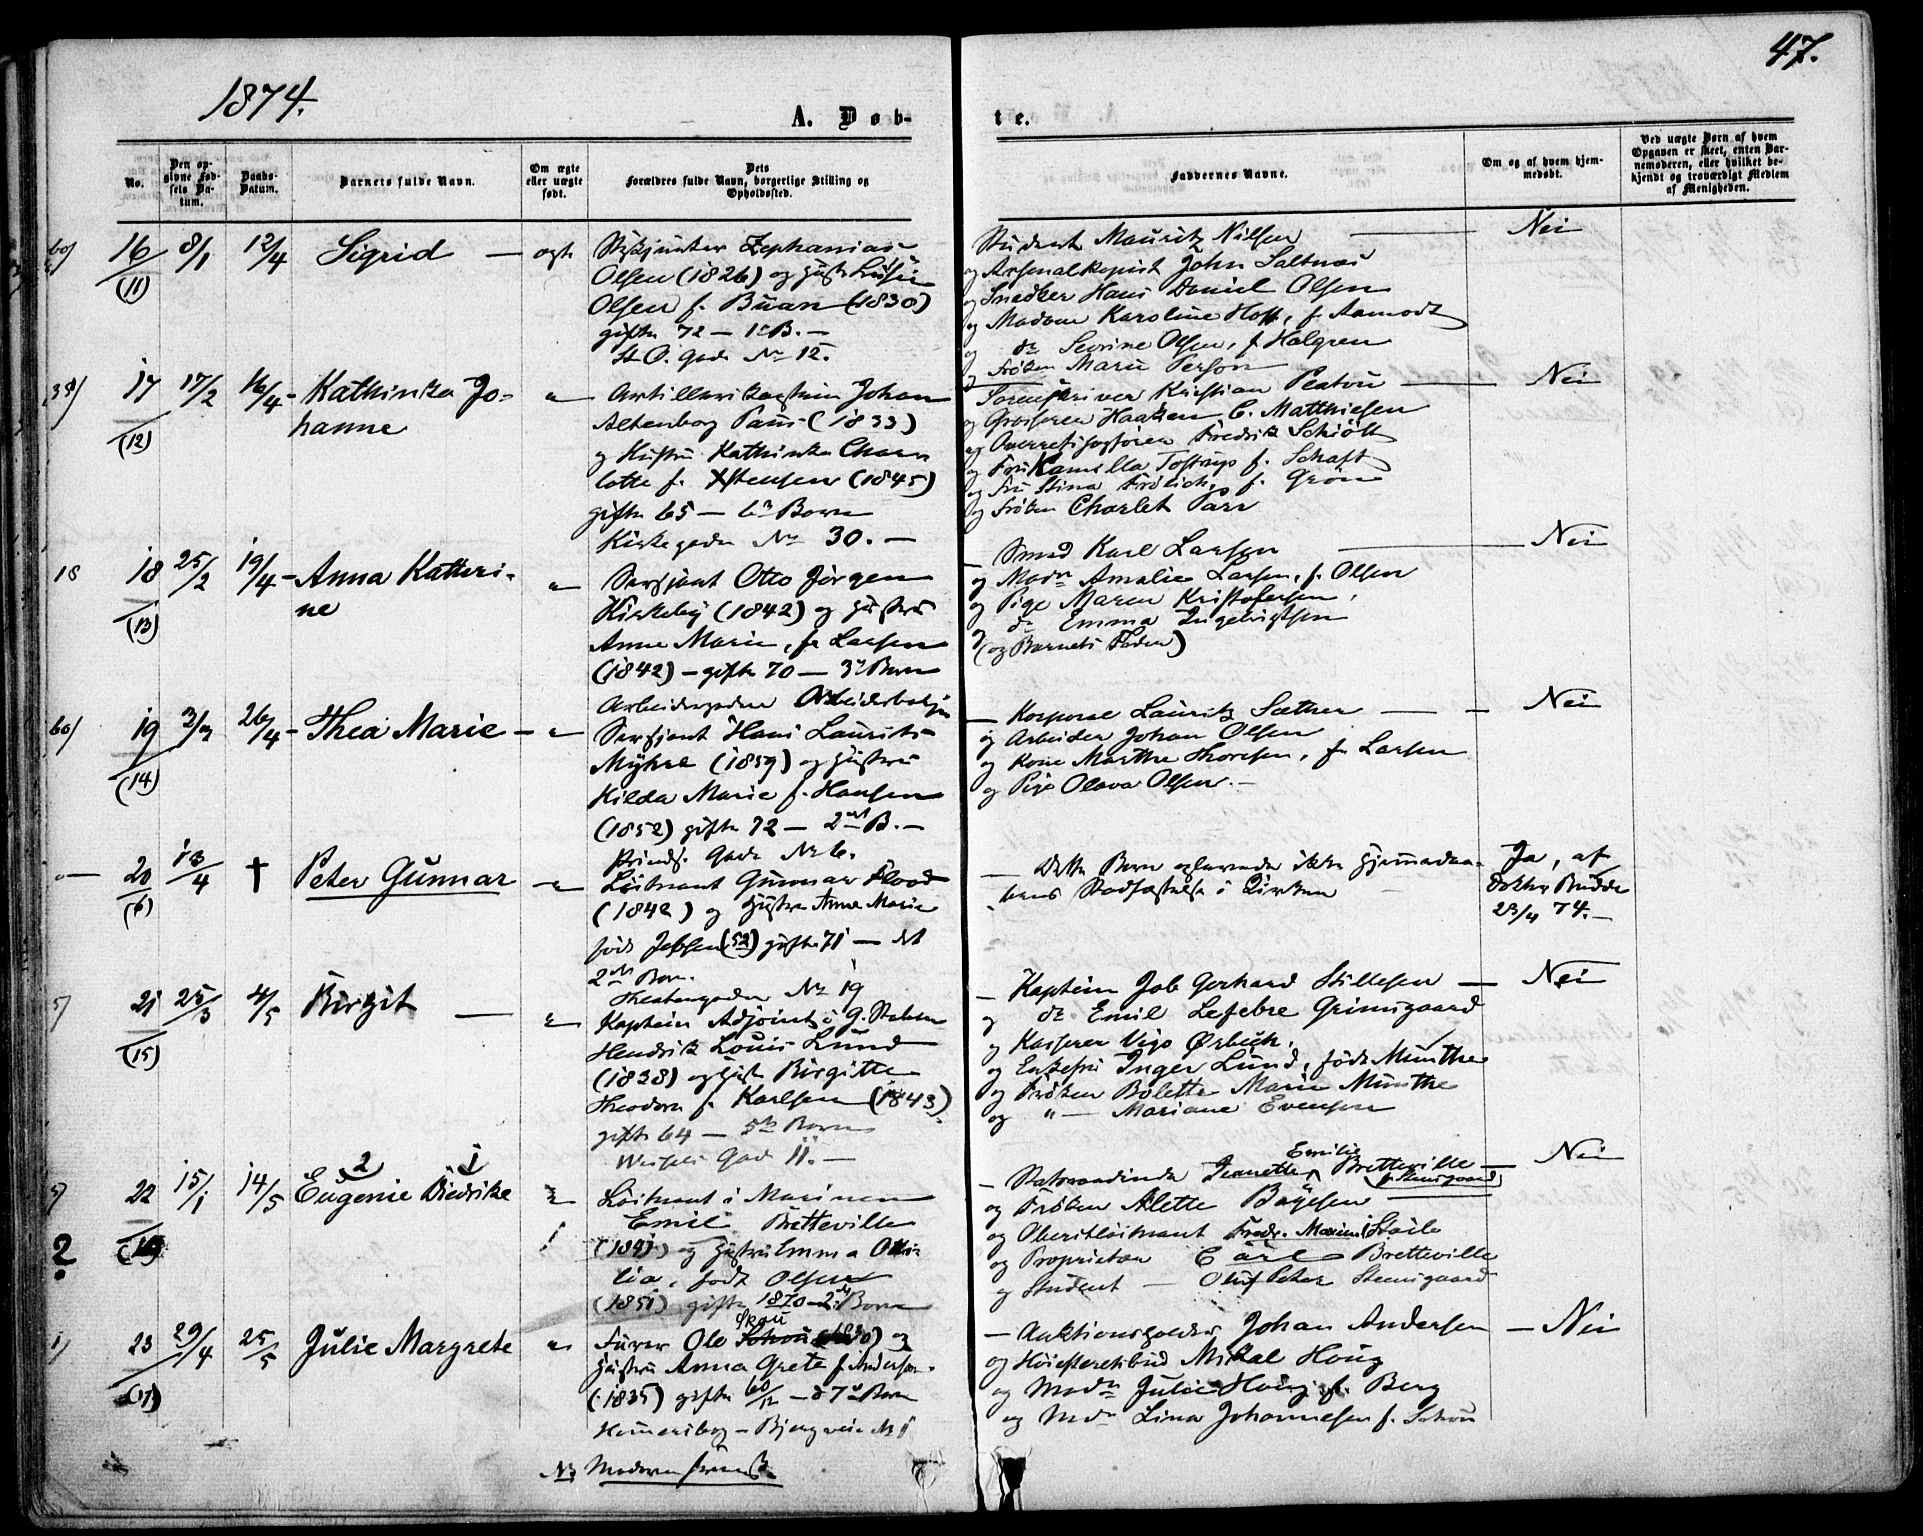 47.
1874.
A. Døb-
te.
No.
Den op-
givne Fød-
sels Da-
tum.
Daabs-
Datum.
Barnets fulde Navn.
Om ægte
eller uægte
født.
Dets
Forældres fulde Navn, borgerlige Stilling og
Opholdssted.
Faddernes Navne.
Om og af hvem hjem-
medøbt.
Ved uægte Børn af hvem
Opgaven er skeet, enten Bar-
nemoderen, eller hvilket be-
kjendt og troværdigt Medlem
af Menigheden.
16
(11)
8/1
12/4
Sigrid
ægte
Zephanias
Olsen (1826) og
Olsen f. Buan (1830)
gifte 72 - 1e B. -
St. O. Gade No 12.
Student Mauritz Nilsen
og Arsenalkopist John Saltnæs
og Snedker Hans Daniel Olsen
og Madam Karoline Hoff, f. Aamodt
og do Sevrine Olsen, f. Halgren
og Frøken Marie Person
Nei
17
(12)
17/2
16/4
Kathinka Jo-
hanne
"
Artillerikaptein Johan
Altenborg Paus (1833)
og Hustru Kathinka Char-
lotte f. Xstensen (1845)
gifte 65 - 6te Barn
Kirkegaden No 30. -
Sorenskriver Kristian
og Grosserer Haaken C. Matthiesen
og Overretssagfører Fredrik Schiøtt
og Fru Kamilla Tostrup f. Schaft
og Fru Stina Frølich, f. Grøn
og Frøken Charlet
Nei
18
18
(13)
25/2
19/4
Anna Katteri-
ne
"
Sersjant Otto Jørgen
Kirkeby (1842) og Hustru
Anne Marie, f. Larsen
(1842) - gifte 70 - 3e Barn
Smed Karl Larsen
og Madm Amalie Larsen, f. Olsen
og Pige Maren Kristofersen,
do Emma Ingebrigtsen
(og Barnets Fader)
Nei
19
(14)
3/3
26/4
Thea Marie
"
Sersjant Hans Laurits
Myhre (1859) og Hustru
Hilda Marie f. Hansen
(1852) gifte 72 - 2det B. -
Prinds. Gade No 6.
Korporal Lauritz Sæther
og Arbeider Johan Olsen
og Kone Marthe Thoresen, f. Larsen
og Pige Olava Olsen. -
Nei
20
(6)
13/4
†
Peter Gunnar
"
Løitnant Gunnar Flood
(1842) og Hustru Anne Marie
født Jebsen (52) gifte 71 - det
2det Barn.
Theatergaden No 19
Dette Barn oplevede ikke Hjemmedaa-
bens Stadfæstelse i Kirken
Ja, af
Doktor Budde
23/4 74. -
21
(15)
25/3
4/5
Birgit
"
Kaptein Adjoint i G. Staben
Hendrik Louis Lund
(1838) og Hust. Birgitte
Theodora f. Karlsen (1843)
gifte 64 - 5te Barn
Gade 11. -
Kaptein Job Gerhard Stillesen
og do Emil Lefebre Grimsgaard
og Kasserer Vigo Ørbech.
og Enkefru Inger Lund, født Munthe
og Frøken Bolette Marie Munthe
og " - Mariane Evensen
Nei
22
15/1
14/5
2 1
Eugenie Diedrike
"
Løitnant i Marinen
Emil Bretteville
og Hustru Emma
født Olsen
(1851) gifte 1870 - 2det Barn
Emilie
Jeanette Bretteville
og Frøken Alette Boyesen
og Oberstløitnant Fredr. Marius
og Proprietær Carl Bretteville
og Student - Oluf Peter Steensgaard
Nei
23
(17)
29/4
25/5
Julie Margrete
"
Skou
Furer Ole og
Hustru Anna Grete f. Anderson
(1835) gifte 60/12 - 7e Barn
Auktionsholder Johan Andersen
og Høiesteretsbud Mikal Houg
og Madm Julie Houg f. Berg
og Mdm Lina Johannesen f. Schou
Nei